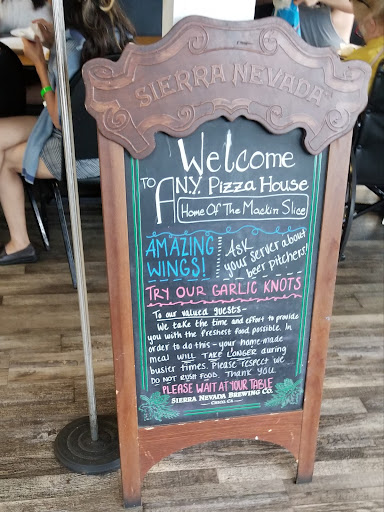 SIERRA NEVADA
Welcome
TO A N.Y. Pizza House
Home Of The Mackin Slice
AMAZING
WINGS!
Ask
your server about
beer pitchers!
TRY OUR GARLIC KNOTS
To our valued guests-
We take the time and effort to provide
you with the freshest food possible. In
order to do this - your home-made
meal WILL TAKE LONGER during
busier times. Please respect we
DO NOT RUSH FOOD. THANK YOU.
PLEASE WAIT AT YOUR TABLE
SIERRA NEVADA BREWING CO.
CHICO, CA